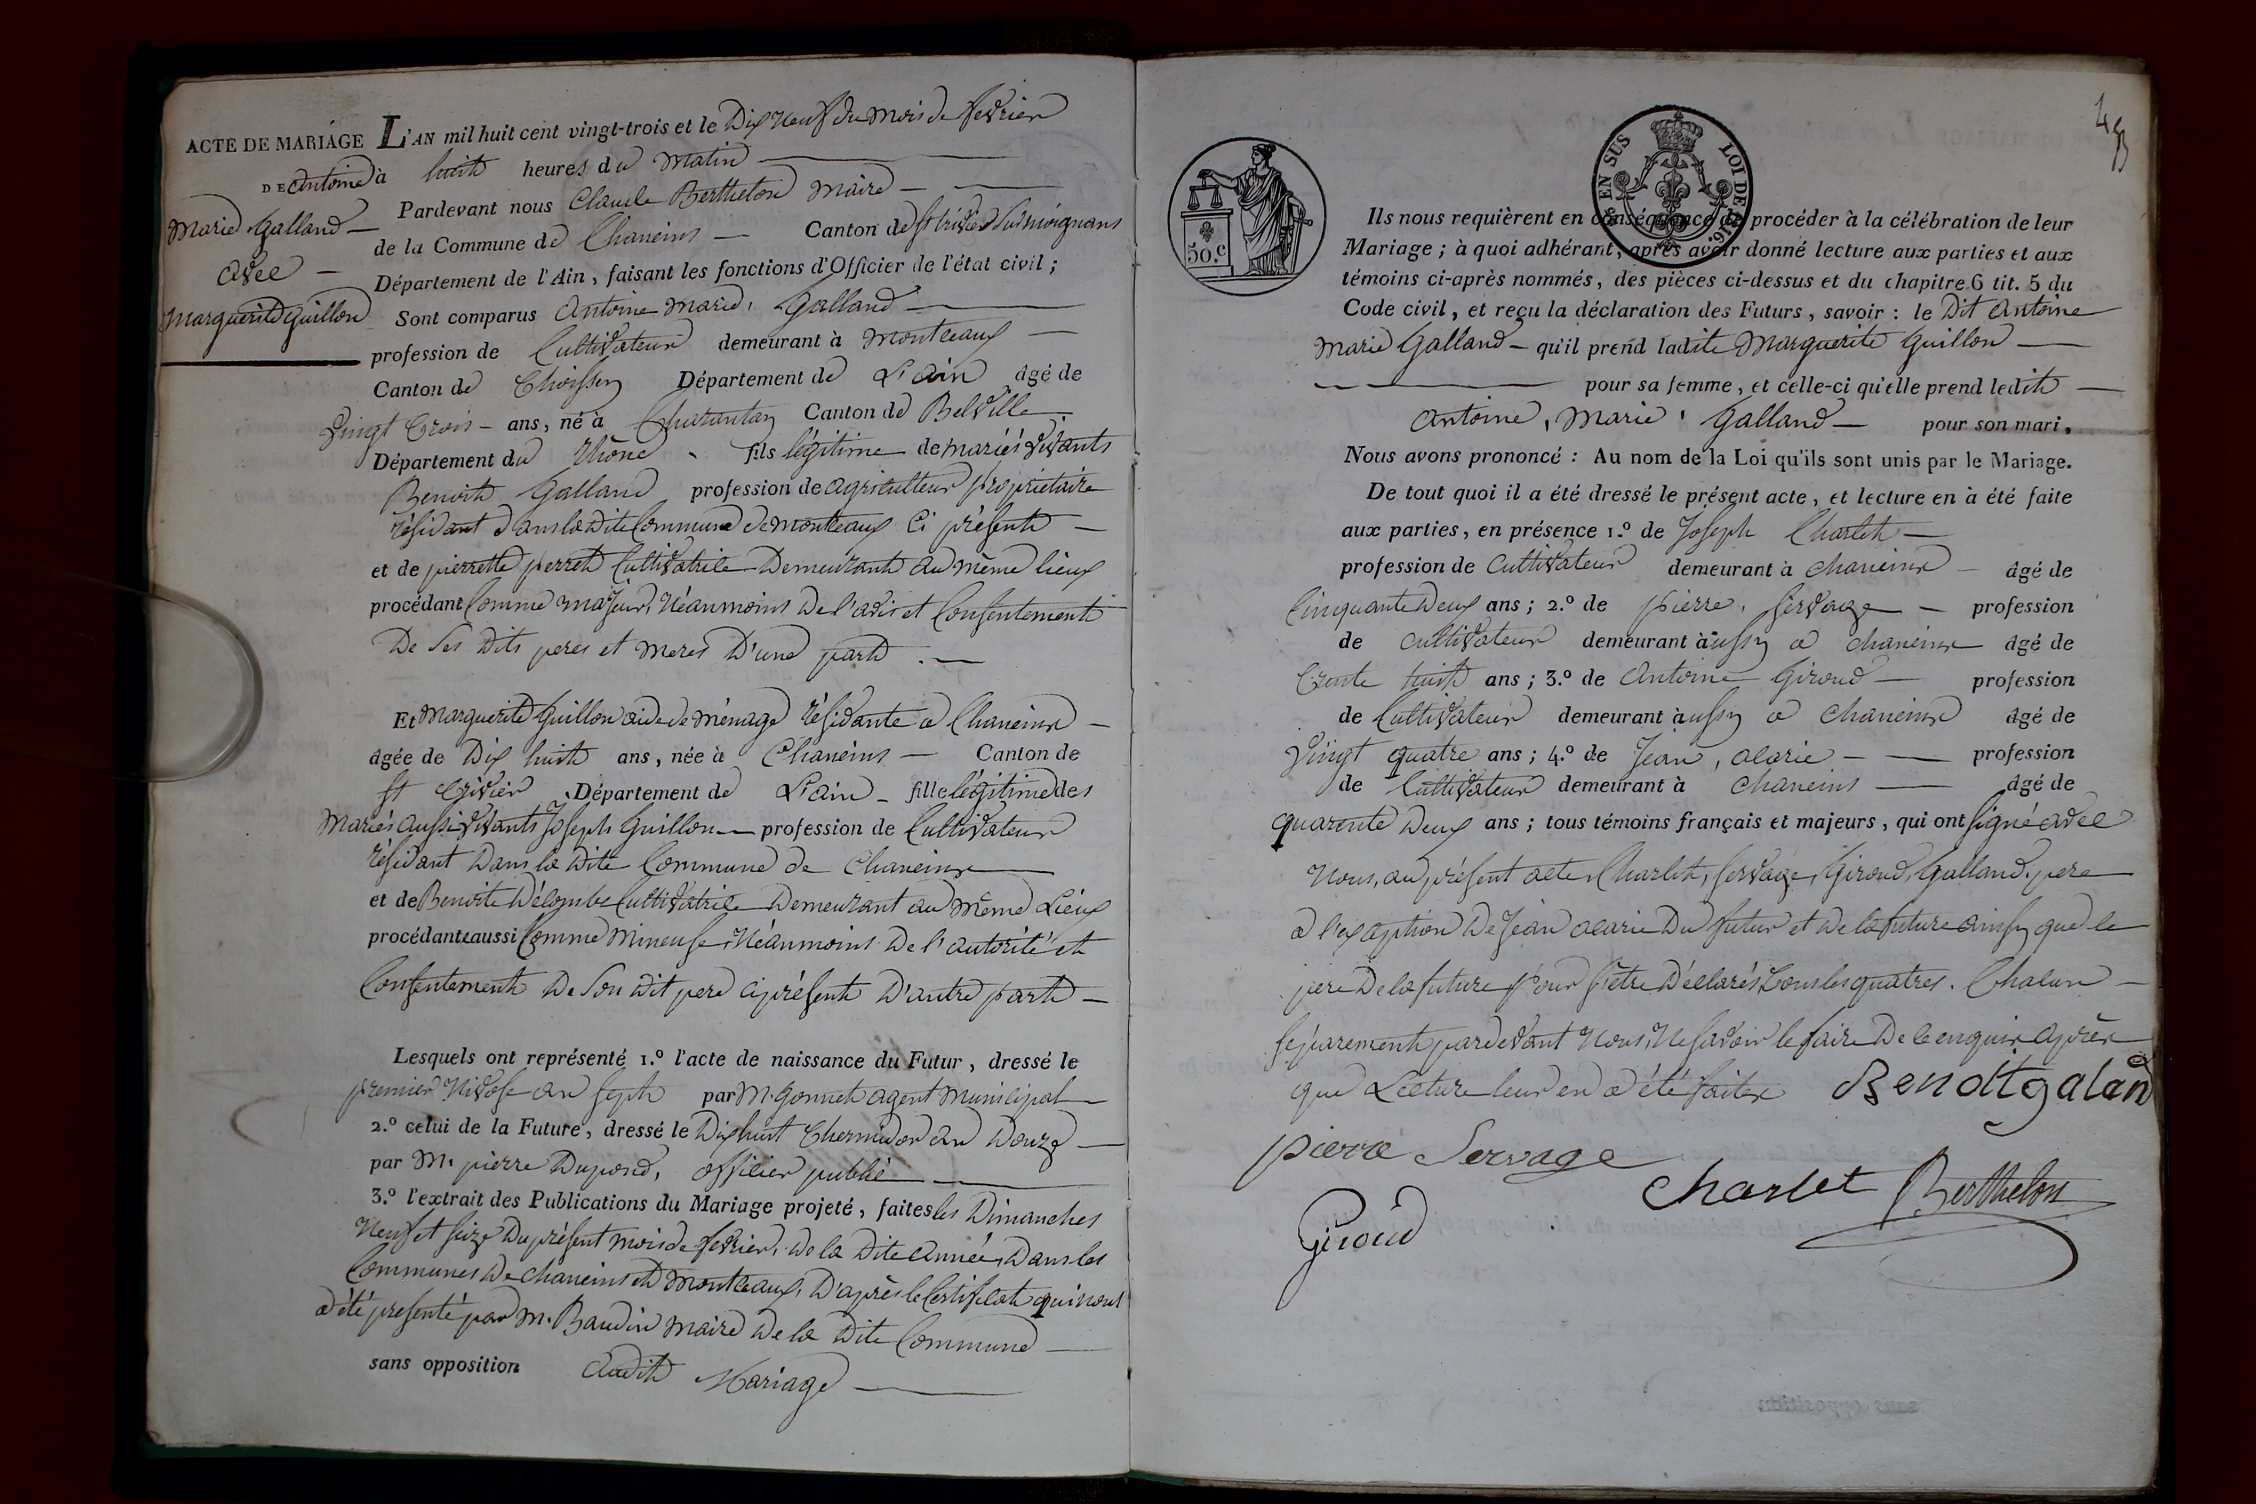 ACTE DE MARIAGE
DE Antoine
Marie Galland —
Avec —
Marguerite Guillon
L'AN mil huit cent vingt-trois et le Dix Neuf du mois de fevrier
à huit heures du Matin
Pardevant nous Claude Berthelon Maire —
de la Commune de Chaneins — Canton de St trivier sur moignans
Département de l'Ain, faisant les fonctions d'Officier de l'état civil ;
Sont comparus Antoine Marie, Galland
profession de Cultivateur demeurant à Montceaux —
Canton de Thoissey Département de L'ain âgé de
Vingt Trois — ans, né à Charantay Canton de Belville
Département du Rhône fils légitime de mariés vivants
Benoit Galland profession de agriculteur propriétaire
résidant dans la dite Commune de Montceaux ci présent —
et de pierrette perret Cultivatrice Demeurant au même lieux
procédant Comme majeur, Néanmoins De l'avis et Consentement
De Ses dits peres et meres D'une part . —
Et Marguerite Guillon aide de ménage résidante a Chaneins —
âgée de Dix huit ans, née à Chaneins — Canton de
St Trivier Département de L'ain — fille légitime des
Mariés aussi vivants Joseph Guillon — profession de Cultivateur
résidant Dans la dite Commune de Chaneins
et de Benoite Délombe Cultivatrice Demeurant au Même Lieux
procédante aussi Comme Mineuse, Néanmoins De l'autorité et
Consentement De Son dit pere ci présent D'autre part —
Lesquels ont représenté 1.º l'acte de naissance du Futur, dressé le
premier Nivose an Sept par M. Gonnet agent Municipal
2.º celui de la Future, dressé le Dix huit Thermidor an Douze —
par M. pierre Dupond, officier public
3.º l'extrait des Publications du Mariage projeté, faites les Dimanches
Neuf et Seize Du présent mois de fevrier, de la dite année, Dans les
Communes de Chaneins et Montceaux, D'après le Certificat qui nous
a été presenté par M. Baudin Maire de la dite Commune —
sans opposition Audit Mariage
50.c
EN SUS LOI DE 1816.
Ils nous requièrent en conséquence de procéder à la célébration de leur
Mariage ; à quoi adhérant, après avoir donné lecture aux parties et aux
témoins ci-après nommés, des pièces ci-dessus et du chapitre 6 tit. 5 du
Code civil, et reçu la déclaration des Futurs, savoir : le Dit Antoine
Marie Galland — qu'il prend ladite Marguerite Guillon —
pour sa femme, et celle-ci qu'elle prend ledit —
Antoine, Marie, Galland — pour son mari.
Nous avons prononcé : Au nom de la Loi qu'ils sont unis par le Mariage.
De tout quoi il a été dressé le présent acte, et lecture en à été faite
aux parties, en présence 1.º de Joseph Charlet —
profession de Cultivateur demeurant à Chaneins — âgé de
Cinquante Deux ans ; 2.º de pierre, Servage — profession
de Cultivateur demeurant à ussy a Chaneins âgé de
Trente huit ans ; 3.º de Antoine Giroud — profession
de Cultivateur demeurant à ussy a Chaneins âgé de
Vingt quatre ans ; 4.º de Jean, alarie — profession
de Cultivateur demeurant à Chaneins — âgé de
quarente Deux ans ; tous témoins français et majeurs, qui ont signé avec
Nous, au présent acte, Charlet, Servage, Giroud, Galland, pere
a l'exception De Jean alarie Du futur et de la future ainsy que le
pere De la future pour s'être Déclarés, Tous les quatres. Chacun —
séparement pardevant Nous, Ne savoir le faire De ce enquis après
que Lecture leur en a été faite
Benoitgalan
pierre Servage
Charlet Berthelon
Giroud
sans opposition